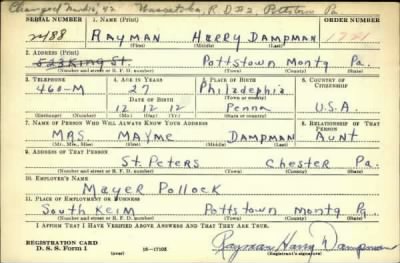 Changed March 16, 42 R.D #2, Pottstown Pa
SERIAL NUMBER 1. NAME (Print) ORDER NUMBER
2488 RAYMAN HERRY DAMPMAN 1721
(First) (Middle) (Last)
2. ADDRESS (Print)
533 King St. Pottstown Montg Pa.
(Number and street or R. F. D. number) (Town) (County) (State)
3. TELEPHONE 4. AGE IN YEARS 5. PLACE OF BIRTH 6. COUNTRY OF CITIZENSHIP
460-M 27 Philadephia
DATE OF BIRTH (Town or county)
12 12 12 Penna U.S.A.
(Mo.) (Day) (Yr.) (State or country)
7. NAME OF PERSON WHO WILL ALWAYS KNOW YOUR ADDRESS 8. RELATIONSHIP OF THAT PERSON
MRS MAYME DAMPMAN AUNT
(Mr., Mrs., Miss) (First) (Middle) (Last)
9. ADDRESS OF THAT PERSON
St. Peters Chester Pa.
(Number and street or R. F. D. number) (Town) (County) (State)
10. EMPLOYER'S NAME
Mayer Pollock
11. PLACE OF EMPLOYMENT OR BUSINESS
South Keim Pottstown Montg Pa
(Number and street or R. F. D. number) (Town) (County) (State)
I AFFIRM THAT I HAVE VERIFIED ABOVE ANSWERS AND THAT THEY ARE TRUE.
REGISTRATION CARD
D. S. S. Form 1 (over) 16-17105 Rayman Harry Dampman
(Registrant's signature)